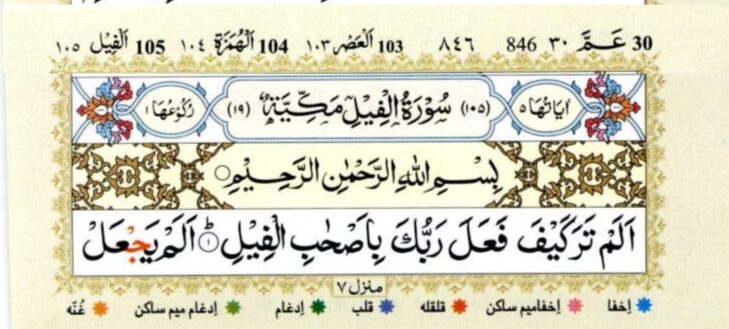 30 عَمَّ ٣٠ 846 ٨٤٦ 103 اَلْعَصْر ١٠٣ 104 اَلْهُمَزَة ١٠٤ 105 اَلْفِيْل ١٠٥
اٰيَاتُهَا ٥ (١٠٥) سُوْرَةُ الْفِيْلِ مَكِّيَّةٌ (١٩) رُكُوْعُهَا ١
بِسْمِ اللّٰهِ الرَّحْمٰنِ الرَّحِيْمِ
اَلَمْ تَرَ كَيْفَ فَعَلَ رَبُّكَ بِاَصْحٰبِ الْفِيْلِ ؕ ۝١ اَلَمْ يَجْعَلْ
منزل ٧
اِخفا اِخفامیم ساکن قلقله قلب اِدغام اِدغام میم ساکن غُنّه